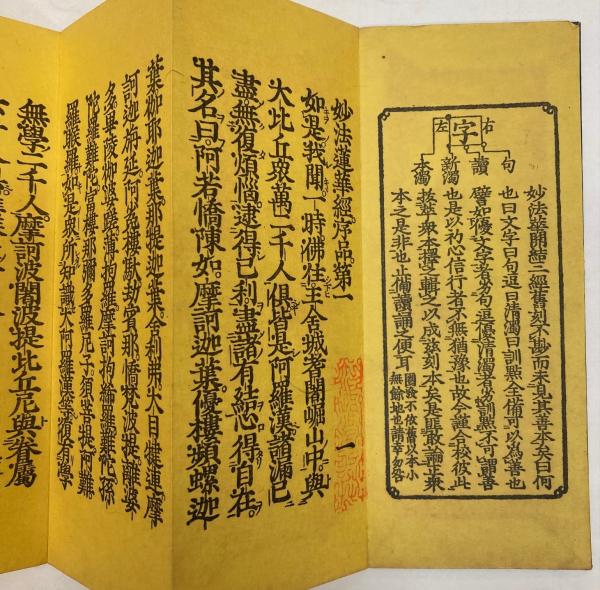 字
右
左
句
讀
新濁
本濁
妙法華開結三經舊刻不尠而未見其善本矣曰何
也曰文字曰句逗曰清濁曰訓點全備可以為善也
譬如文字者易句逗優清濁者訓點不可謂善
也是以初心信行者不無猶豫也故今謹合校彼此
拔萃衆本撰之輯之以成茲刻本矣是匪敢論正衆
本之是非也止備讀誦之便耳
圖設不依舊以本小
無餘地也請幸勿咎
妙法蓮華經序品第一
一
如是我聞一時佛住王舍城耆闍崛山中與
大比丘衆萬二千人俱皆是阿羅漢諸漏已
盡無復煩惱逮得己利盡諸有結心得自在
其名曰阿若憍陳如摩訶迦葉優樓頻螺迦
葉伽耶迦葉那提迦葉舍利弗大目揵連摩
訶迦旃延阿㝹樓馱劫賓那憍梵波提離婆
多畢陵伽婆蹉薄拘羅摩訶拘絺羅難陀孫
陀羅難陀富樓那彌多羅尼子須菩提阿難
羅睺羅如是衆所知識大阿羅漢等復有學
無學二千人摩訶波闍波提比丘尼與眷屬